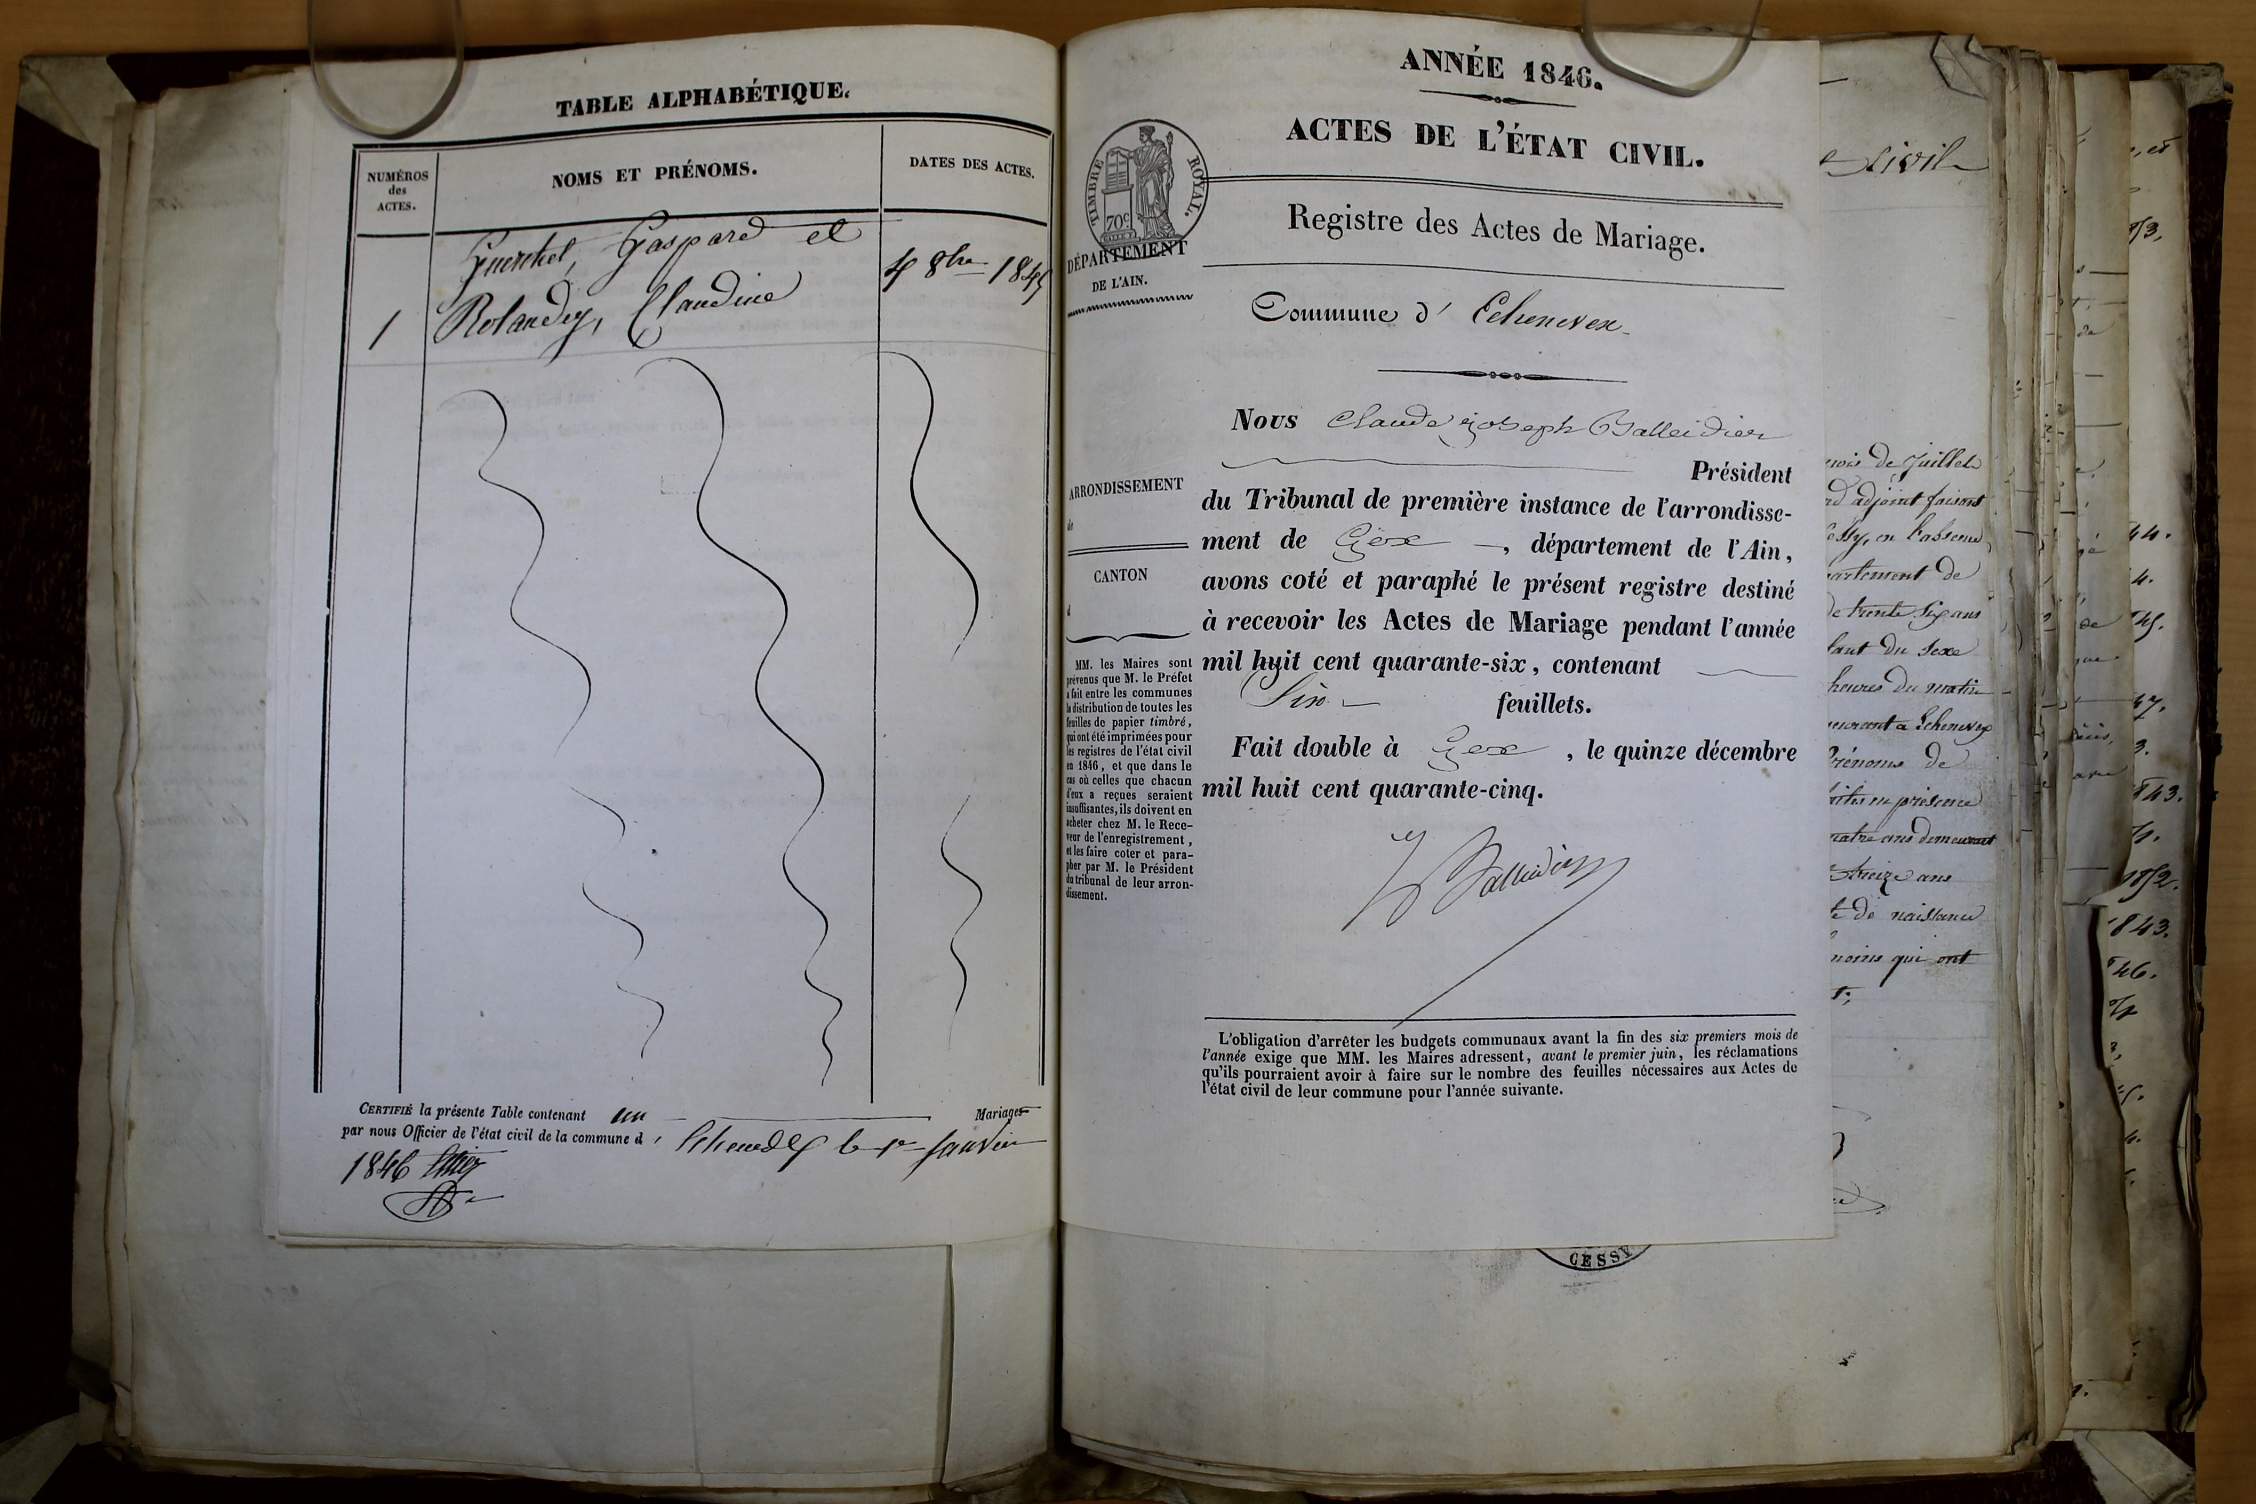 TABLE ALPHABÉTIQUE.
NUMÉROS
des
ACTES.
NOMS ET PRÉNOMS.
DATES DES ACTES.
Gaspard et
4 8bre 1845
1
Rolandey, Claudine
CERTIFIÉ la présente Table contenant un Mariages
par nous Officier de l'état civil de la commune d' Echenevex le 1er janvier
1846
ANNÉE 1846.
ACTES DE L'ÉTAT CIVIL.
TIMBRE ROYAL.
70c
DÉPARTEMENT
DE L'AIN.
Registre des Actes de Mariage.
Commune d' Echenevex
Nous Claude joseph Balleidier
Président
du Tribunal de première instance de l'arrondisse-
ment de Gex, département de l'Ain,
avons coté et paraphé le présent registre destiné
à recevoir les Actes de Mariage pendant l'année
mil huit cent quarante-six, contenant
Six feuillets.
Fait double à Gex, le quinze décembre
mil huit cent quarante-cinq.
Balleidier
ARRONDISSEMENT
de
CANTON
d
MM. les Maires sont
prévenus que M. le Préfet
a fait entre les communes
la distribution de toutes les
feuilles de papier timbré,
qui ont été imprimées pour
les registres de l'état civil
en 1846, et que dans le
cas où celles que chacun
d'eux a reçues seraient
insuffisantes, ils doivent en
acheter chez M. le Rece-
veur de l'enregistrement,
et les faire coter et para-
pher par M. le Président
du tribunal de leur arron-
dissement.
L'obligation d'arrêter les budgets communaux avant la fin des six premiers mois de
l'année exige que MM. les Maires adressent, avant le premier juin, les réclamations
qu'ils pourraient avoir à faire sur le nombre des feuilles nécessaires aux Actes de
l'état civil de leur commune pour l'année suivante.
CESSY
civil
mois de Juillet
adjoint faisant
Cessy, en l'absence
département de
de trente six ans
enfant du sexe
heures du matin
demeurant a Echenevex
Prénoms de
faites en présence
quatre ans demeurant
treize ans
de naissance
témoins qui ont